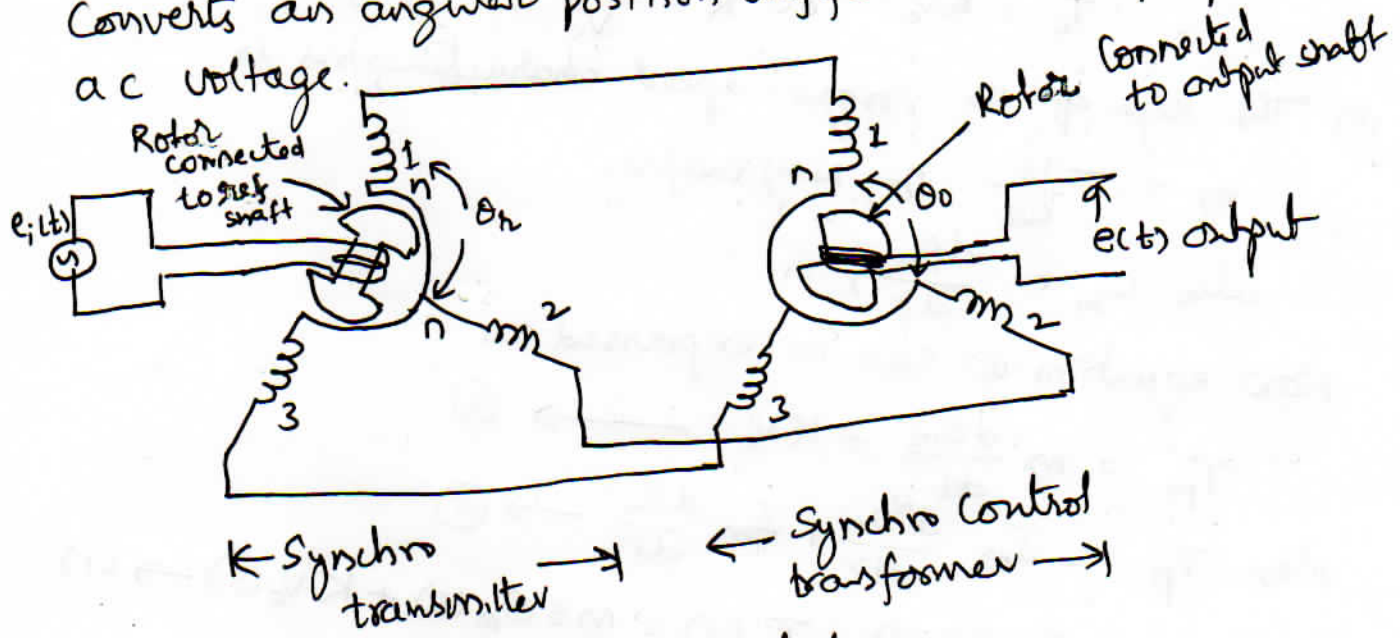 Converts an angular position
ac voltage.
Rotor
connected
to ref
shaft
Rotor connected
to output shaft
1
1
n
n
θr
θo
ei(t)
e(t) output
n
2
2
3
3
Synchro
transmitter
Synchro Control
transformer